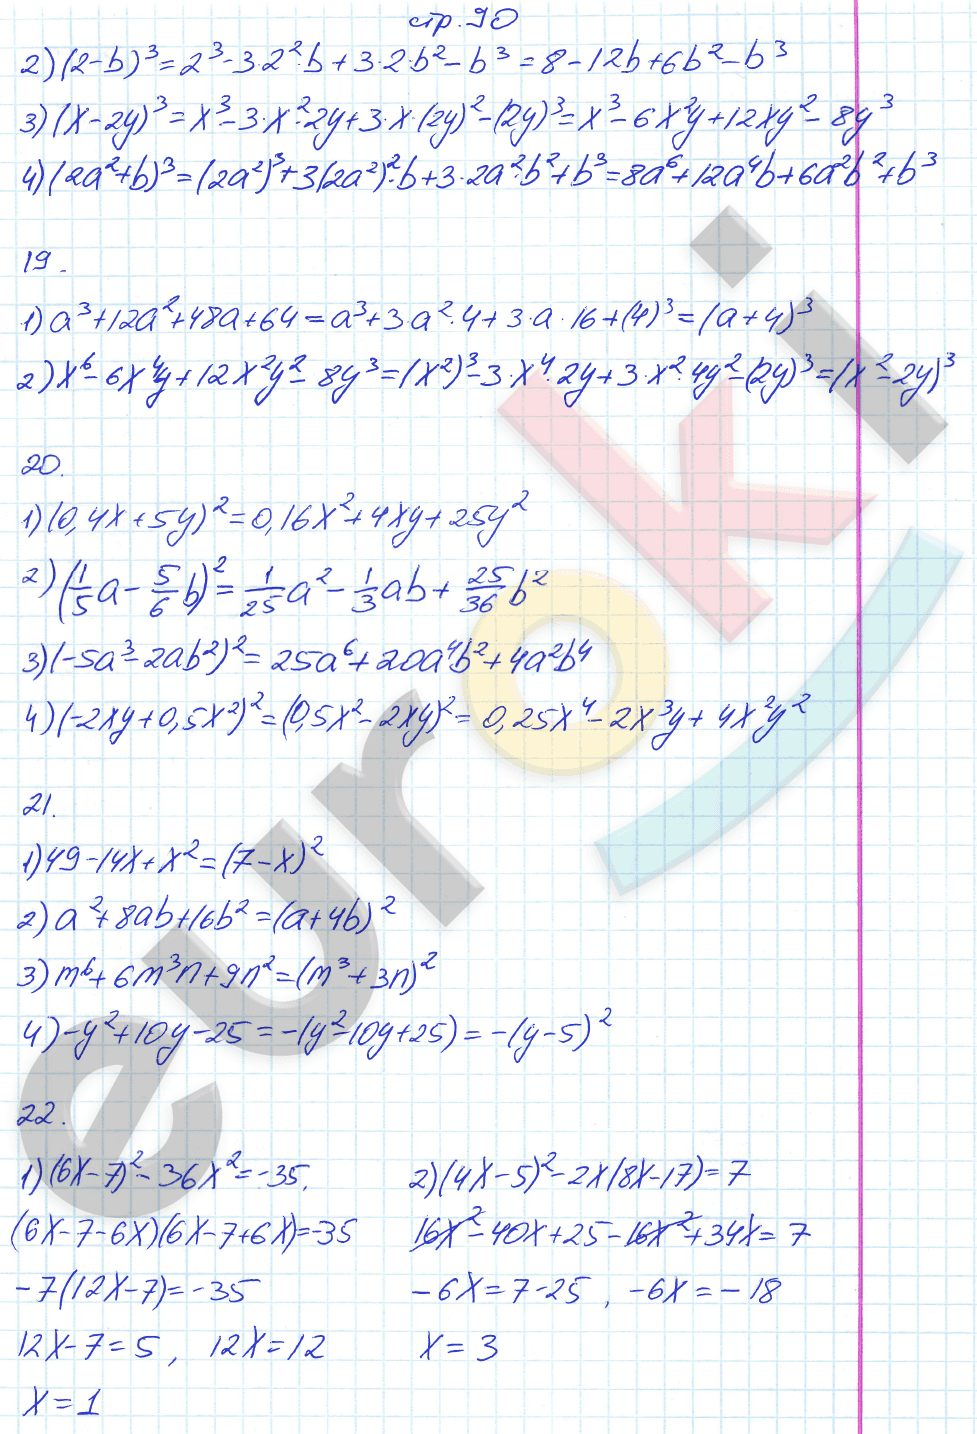 стр. 90
2) (2-b)³ = 2³ - 3·2²·b + 3·2·b² - b³ = 8 - 12b + 6b² - b³
3) (x - 2y)³ = x³ - 3·x²·2y + 3·x·(2y)² - (2y)³ = x³ - 6x²y + 12xy² - 8y³
4) (2a² + b)³ = (2a²)³ + 3(2a²)²·b + 3·2a²·b² + b³ = 8a⁶ + 12a⁴b + 6a²b² + b³
19.
1) a³ + 12a² + 48a + 64 = a³ + 3·a²·4 + 3·a·16 + (4)³ = (a + 4)³
2) x⁶ - 6x⁴y + 12x²y² - 8y³ = (x²)³ - 3·x⁴·2y + 3·x²·4y² - (2y)³ = (x² - 2y)³
20.
1) (0,4x + 5y)² = 0,16x² + 4xy + 25y²
2) (1/5 a - 5/6 b)² = 1/25 a² - 1/3 ab + 25/36 b²
3) (-5a³ - 2ab²)² = 25a⁶ + 20a⁴b² + 4a²b⁴
4) (-2xy + 0,5x²)² = (0,5x² - 2xy)² = 0,25x⁴ - 2x³y + 4x²y²
21.
1) 49 - 14x + x² = (7 - x)²
2) a² + 8ab + 16b² = (a + 4b)²
3) m⁶ + 6m³n + 9n² = (m³ + 3n)²
4) -y² + 10y - 25 = -(y² - 10y + 25) = -(y - 5)²
22.
1) (6x - 7)² - 36x² = -35,
(6x - 7 - 6x)(6x - 7 + 6x) = -35
-7(12x - 7) = -35
12x - 7 = 5, 12x = 12
x = 1
2) (4x - 5)² - 2x(8x - 17) = 7
16x² - 40x + 25 - 16x² + 34x = 7
-6x = 7 - 25, -6x = -18
x = 3
euroki